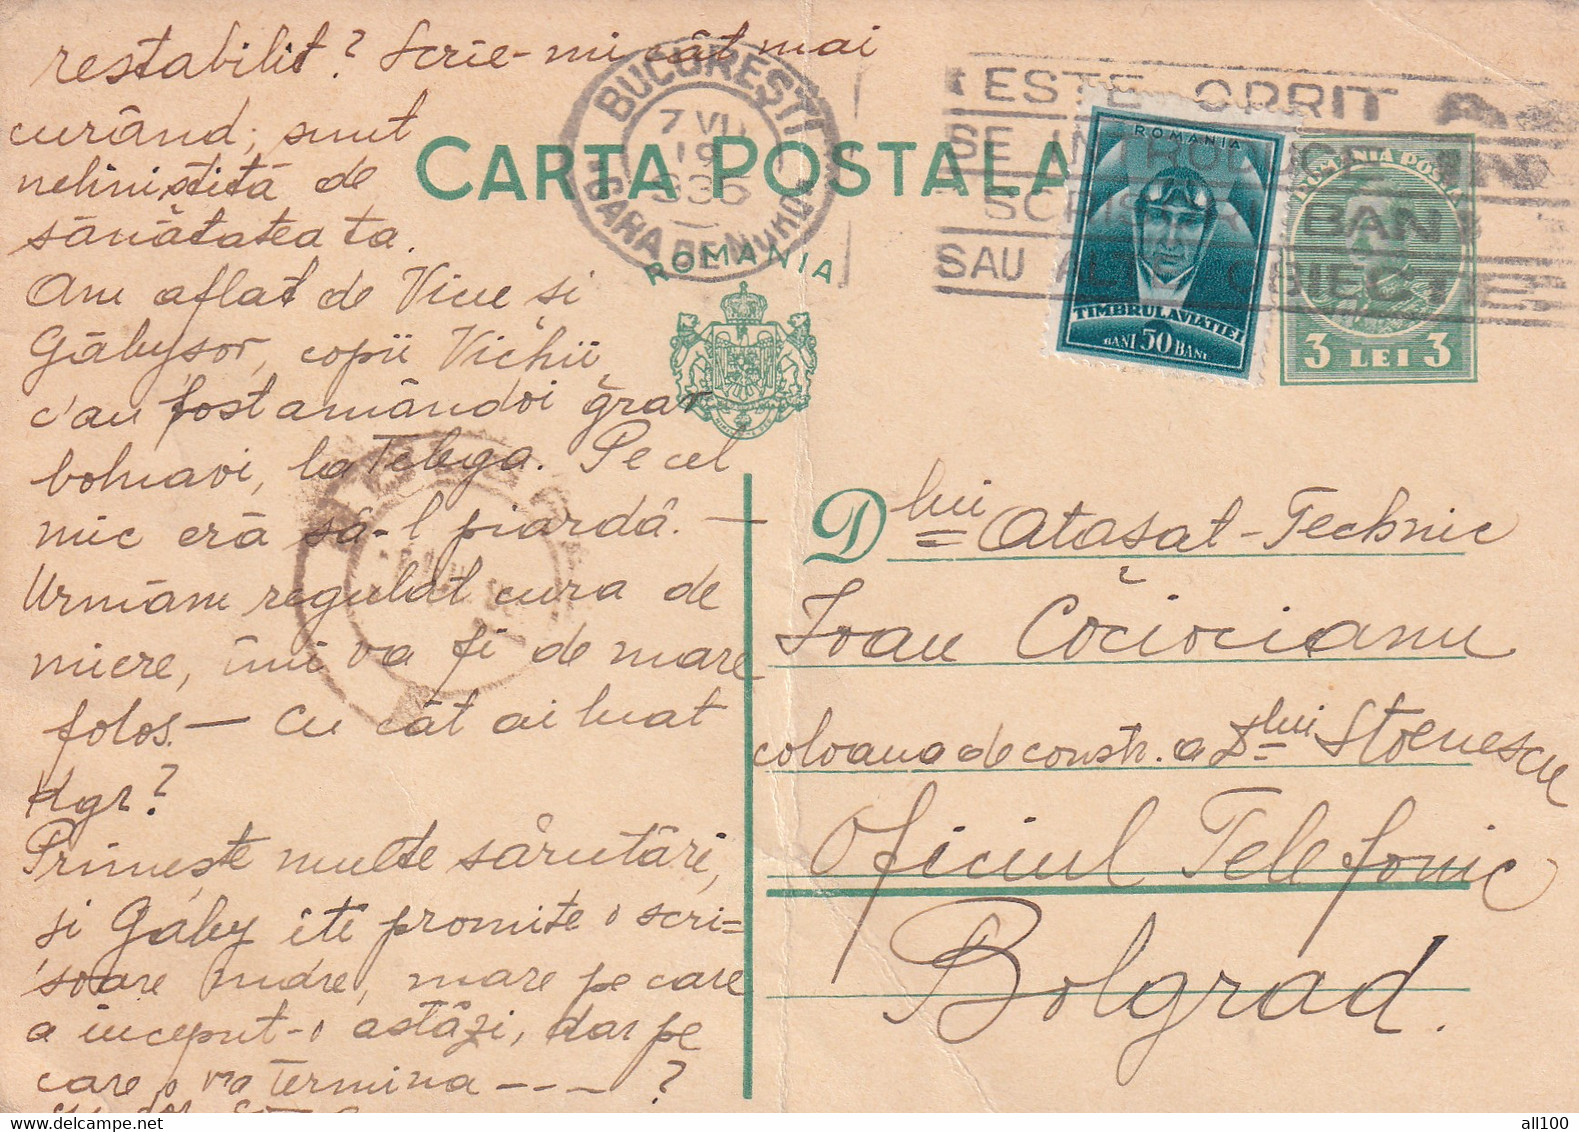 restabilit? Scrie-mi cât mai
curând; sunt
neliniștită de
sănătatea ta.
Am aflat de Vicu și
Găbyșor, copii Vichii,
c'au fost amândoi grav
bolnavi, la Telega. Pe cel
mic eră să-l piardă. —
Urmăm regulat cura de
miere, îmi va fi de mare
folos. — Cu cât ai luat
Primește multe sărutări,
și Găby îți promite o scri=
soare mare, mare pe care
a început-o astăzi, dar pe
care o va termina - - - - ?
CARTA POSTALA
ROMANIA
BUCUREȘTI
7 VII
19
936
GARA DE NORD
ESTE OPRIT A
SE INTRODUCE IN
SCRISORI BANI
SAU ALTE OBIECTE
ROMANIA
TIMBRUL AVIATIEI
BANI 50 BANI
ROMANIA POSTA
3 LEI 3
Dlui Atașat-Technic
Ioan Cociocianu
coloana de constr. a Dlui Stoenescu
Oficiul Telefonic
Bolgrad.
all100